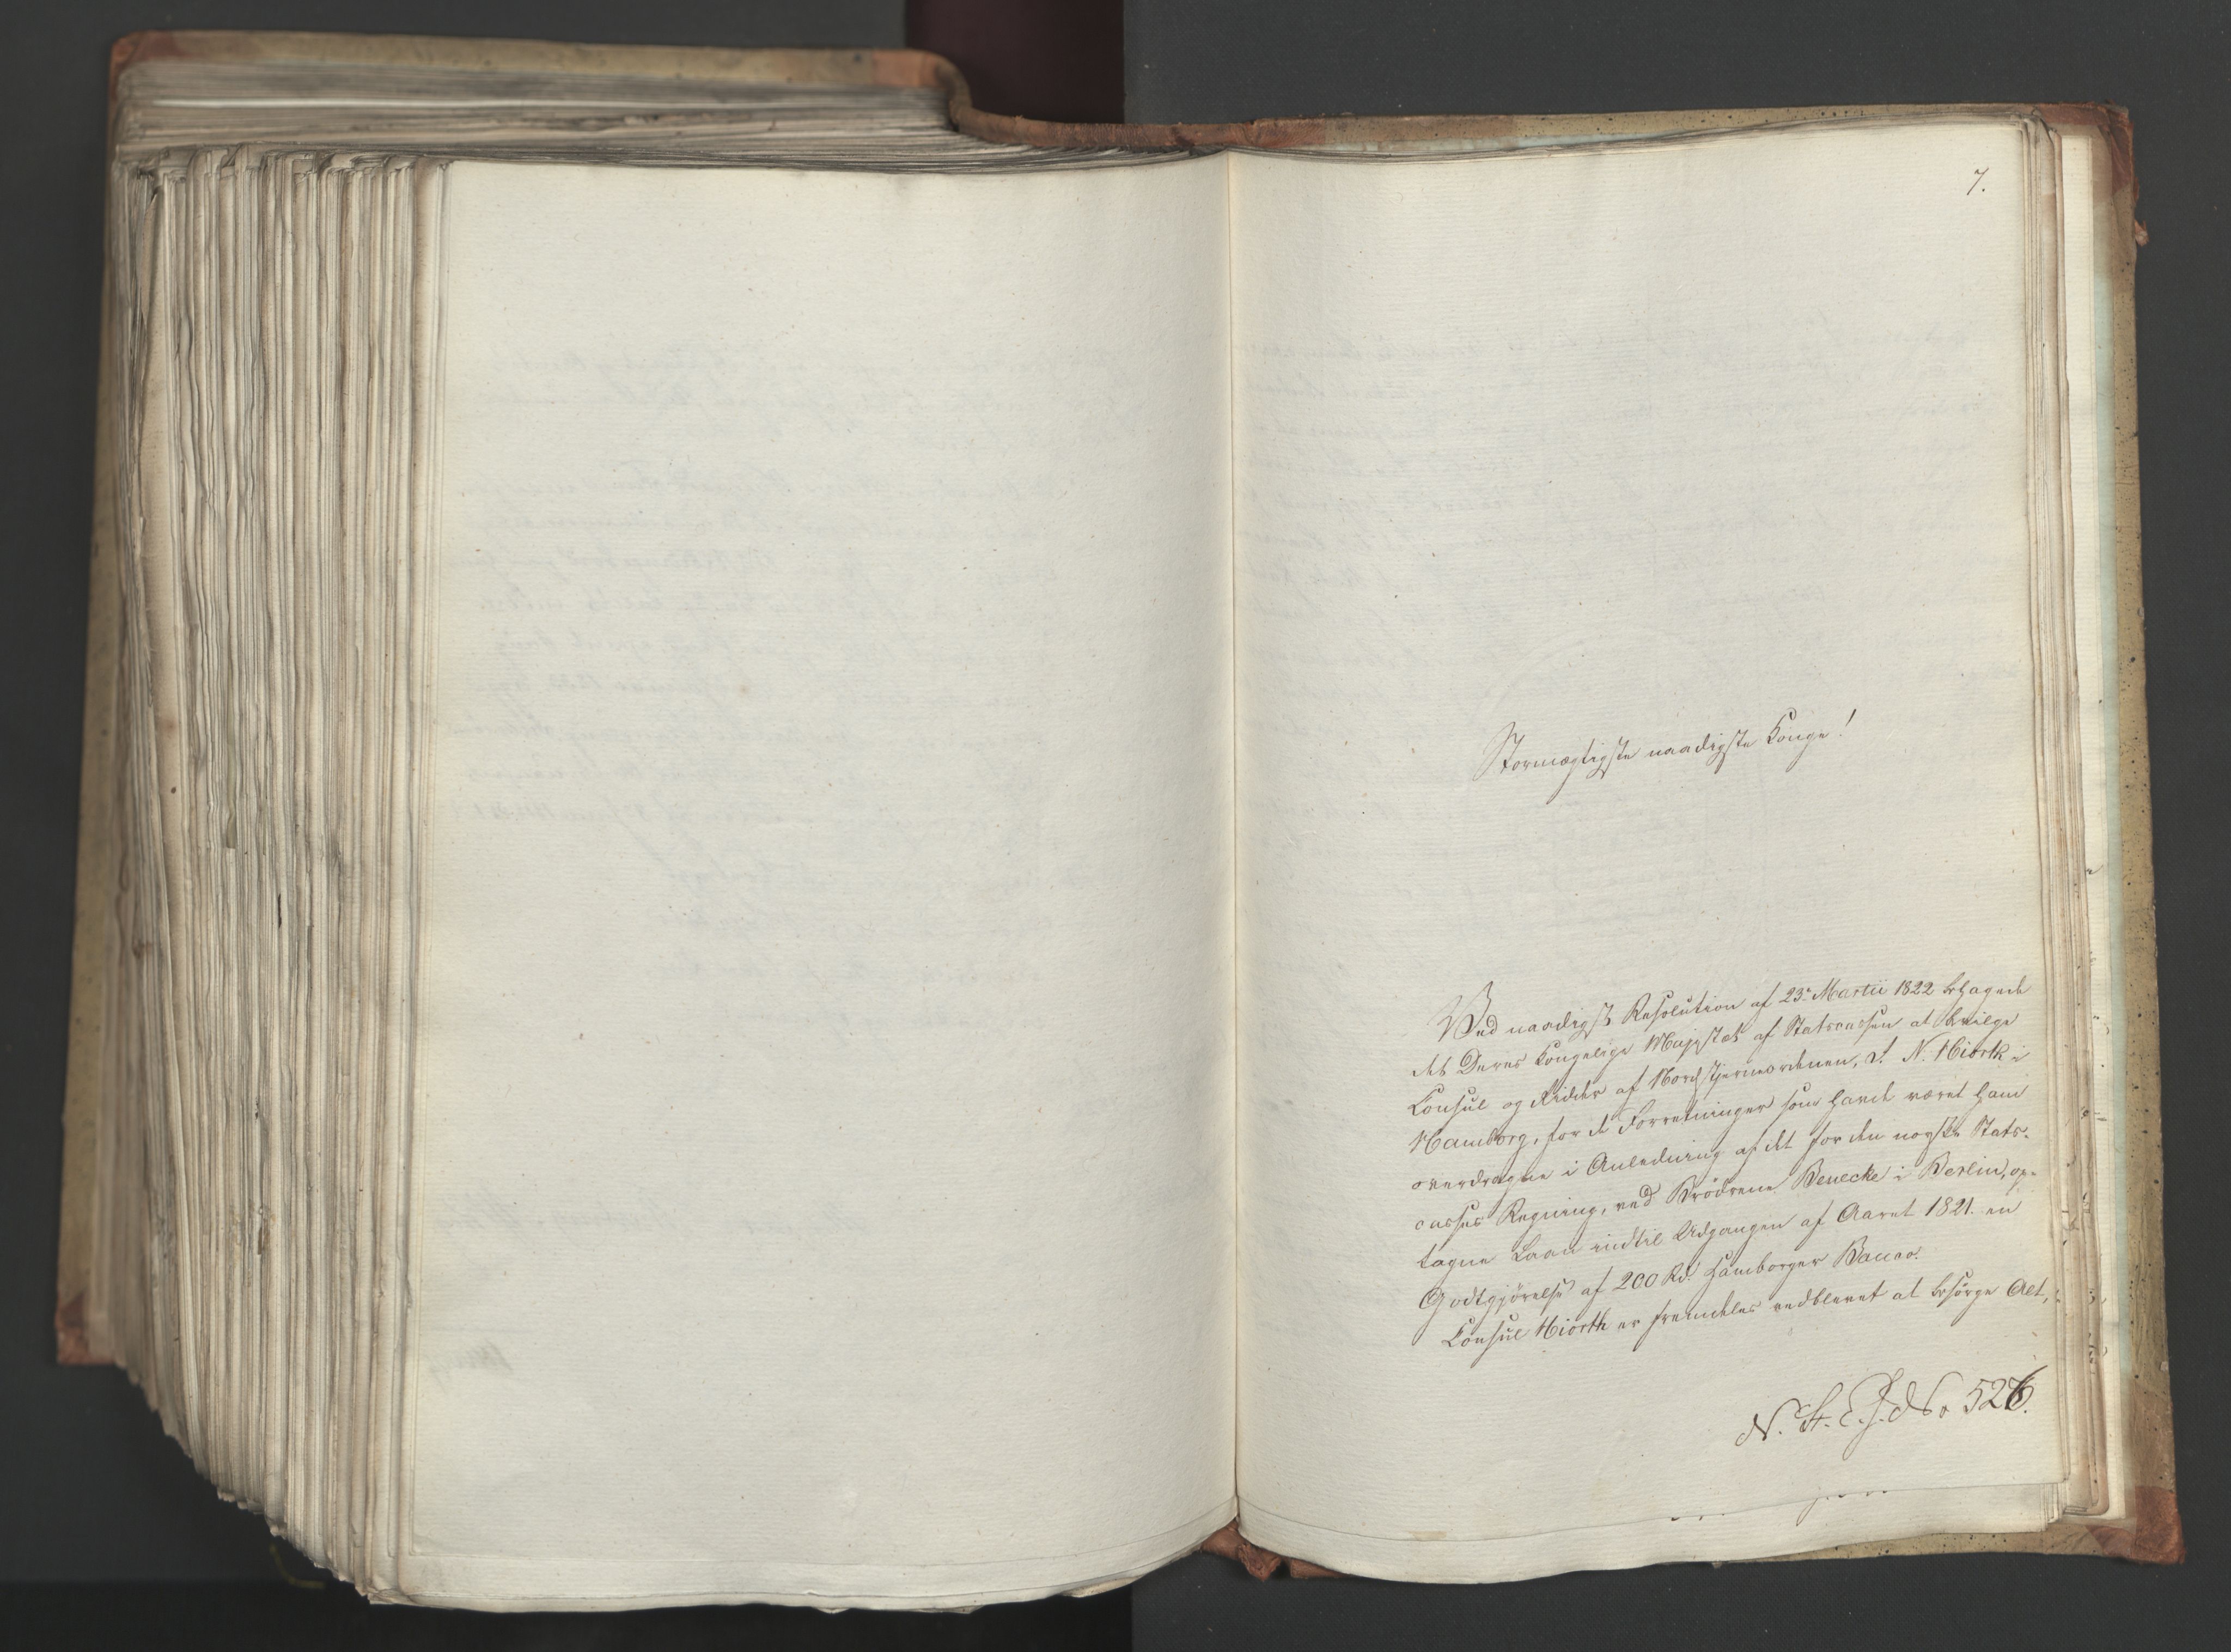 7.
Stormægtigste naadigste Konge!
Ved naadigst Resolution af 23de Martii 1822 behagede
det Deres Kongelige Majestæt af Statscassen at bevilge
Consul og Ridder af Nordstjerneordenen, J. N. Hiorth i
Hamborg, for de Forretninger som havde været ham
overdragne i Anledning af det for den norske Stats-
casses Regning, ved Brødrene Benecke i Berlin, op-
tagne Laan indtil Udgangen af Aaret 1821. en
Godtgjørelse af 200 Rd. Hamborger Banco.
Consul Hiorth er fremdeles vedblevet at besørge Alt,
N. St. E. J. No 526.